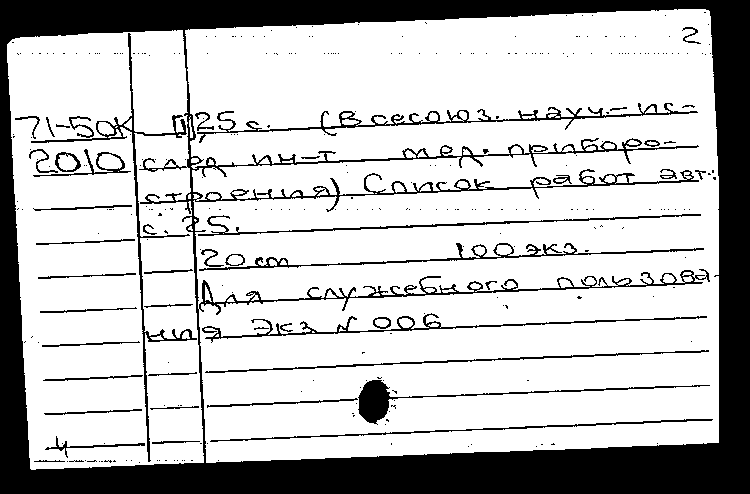 2
71-50К [1],25 с. (Всесоюз. науч.-ис-
2010 след. ин-т мед. приборо-
строения). Список работ авт.:
с. 25.
20 cm 100 экз.
Для служебного пользова-
ния Экз N 006
4